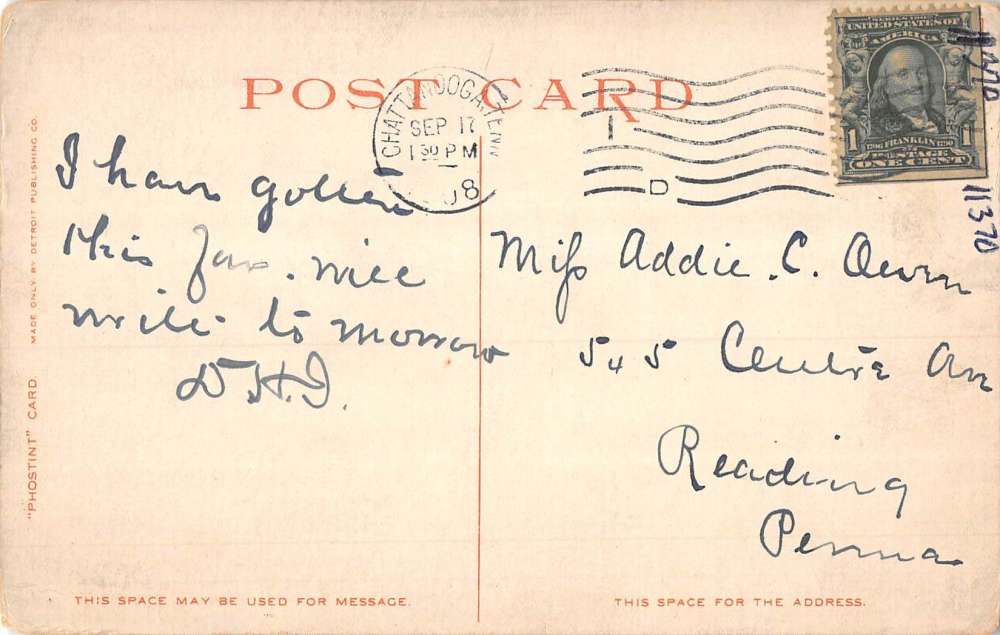 POST CARD
CHATTANOOGA, TENN.
SEP 17
1 30 P M
08
D
SERIES 1902
UNITED STATES OF
AMERICA
1 1
1706 FRANKLIN 1790
POSTAGE
ONE CENT
11370
11370
I have gotten
this far. will
write to morrow
D.H.I.
Miss Addie. C. Owen
545 Centre Ave
Reading
Penna
"PHOSTINT" CARD
MADE ONLY BY DETROIT PUBLISHING CO.
THIS SPACE MAY BE USED FOR MESSAGE.
THIS SPACE FOR THE ADDRESS.